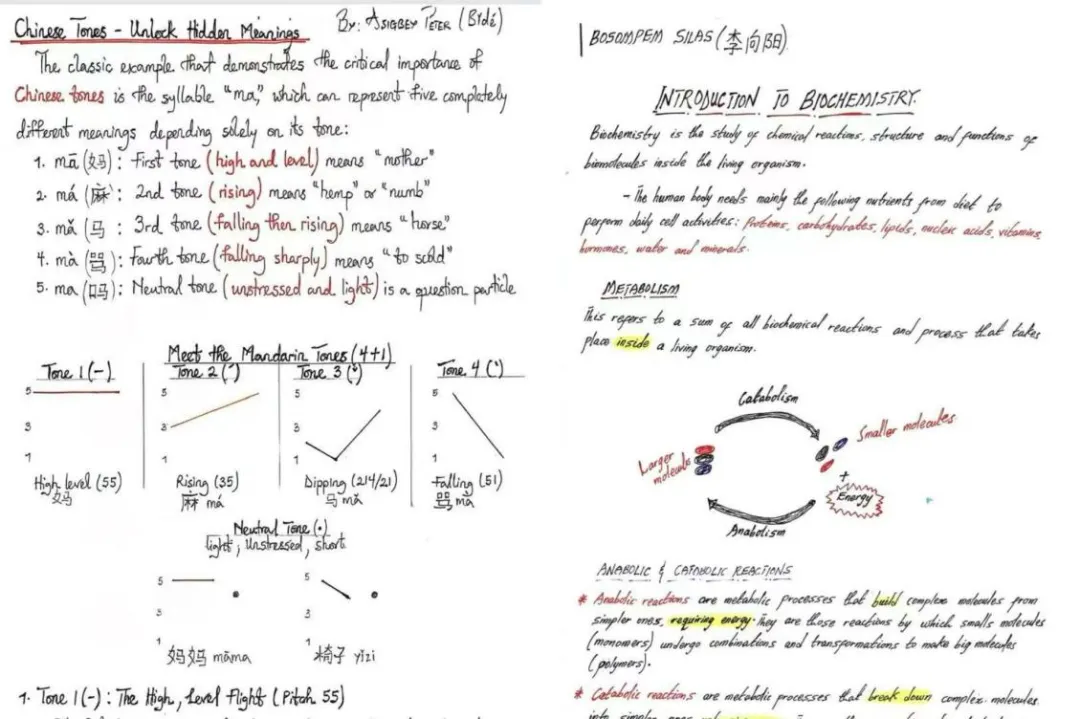 Chinese Tones - Unlock Hidden Meanings By: Asigbey Peter (Bidé)
The classic example that demonstrates the critical importance of
Chinese tones is the syllable "ma," which can represent five completely
different meanings depending solely on its tone:
1. mā (妈) : First tone (high and level) means "mother"
2. má (麻) : 2nd tone (rising) means "hemp" or "numb"
3. mǎ (马 : 3rd tone (falling then rising) means "horse"
4. mà (骂) : Fourth tone (falling sharply) means "to scold"
5. ma (吗) : Neutral tone (unstressed and light) is a question particle
Meet the Mandarin Tones (4+1)
Tone 1 (-)
5
3
1
High level (55)
妈
Tone 2 (ˊ)
5
3
1
Rising (35)
麻 má
Tone 3 (ˇ)
5
3
1
Dipping (214/21)
马 mǎ
Tone 4 (ˋ)
5
3
1
Falling (51)
骂 mà
Neutral Tone (•)
light, Unstressed, short
5
3
1
妈妈 māma
5
3
1
椅子 yǐzi
1. Tone 1 (-) : The High, Level Flight (Pitch 55)
BOSOMPEM SILAS (李向阳)
INTRODUCTION TO BIOCHEMISTRY.
Biochemistry is the study of chemical reactions, structure and functions of
biomolecules inside the living organism.
- The human body needs mainly the following nutrients from diet to
perform daily cell activities: Proteins, carbohydrates, lipids, nucleic acids, vitamins,
hormones, water and minerals.
METABOLISM
This refers to a sum of all biochemical reactions and process that takes
place inside a living organism.
Catabolism
Larger
molecule
Smaller molecules
+
Energy
Anabolism
ANABOLIC & CATABOLIC REACTIONS
* Anabolic reactions are metabolic processes that build complex molecules from
simpler ones, requiring energy. They are those reactions by which smalls molecules
(monomers) undergo combinations and transformations to make big molecules
(polymers).
* Catabolic reactions are metabolic processes that break down complex molecules
into simpler ones